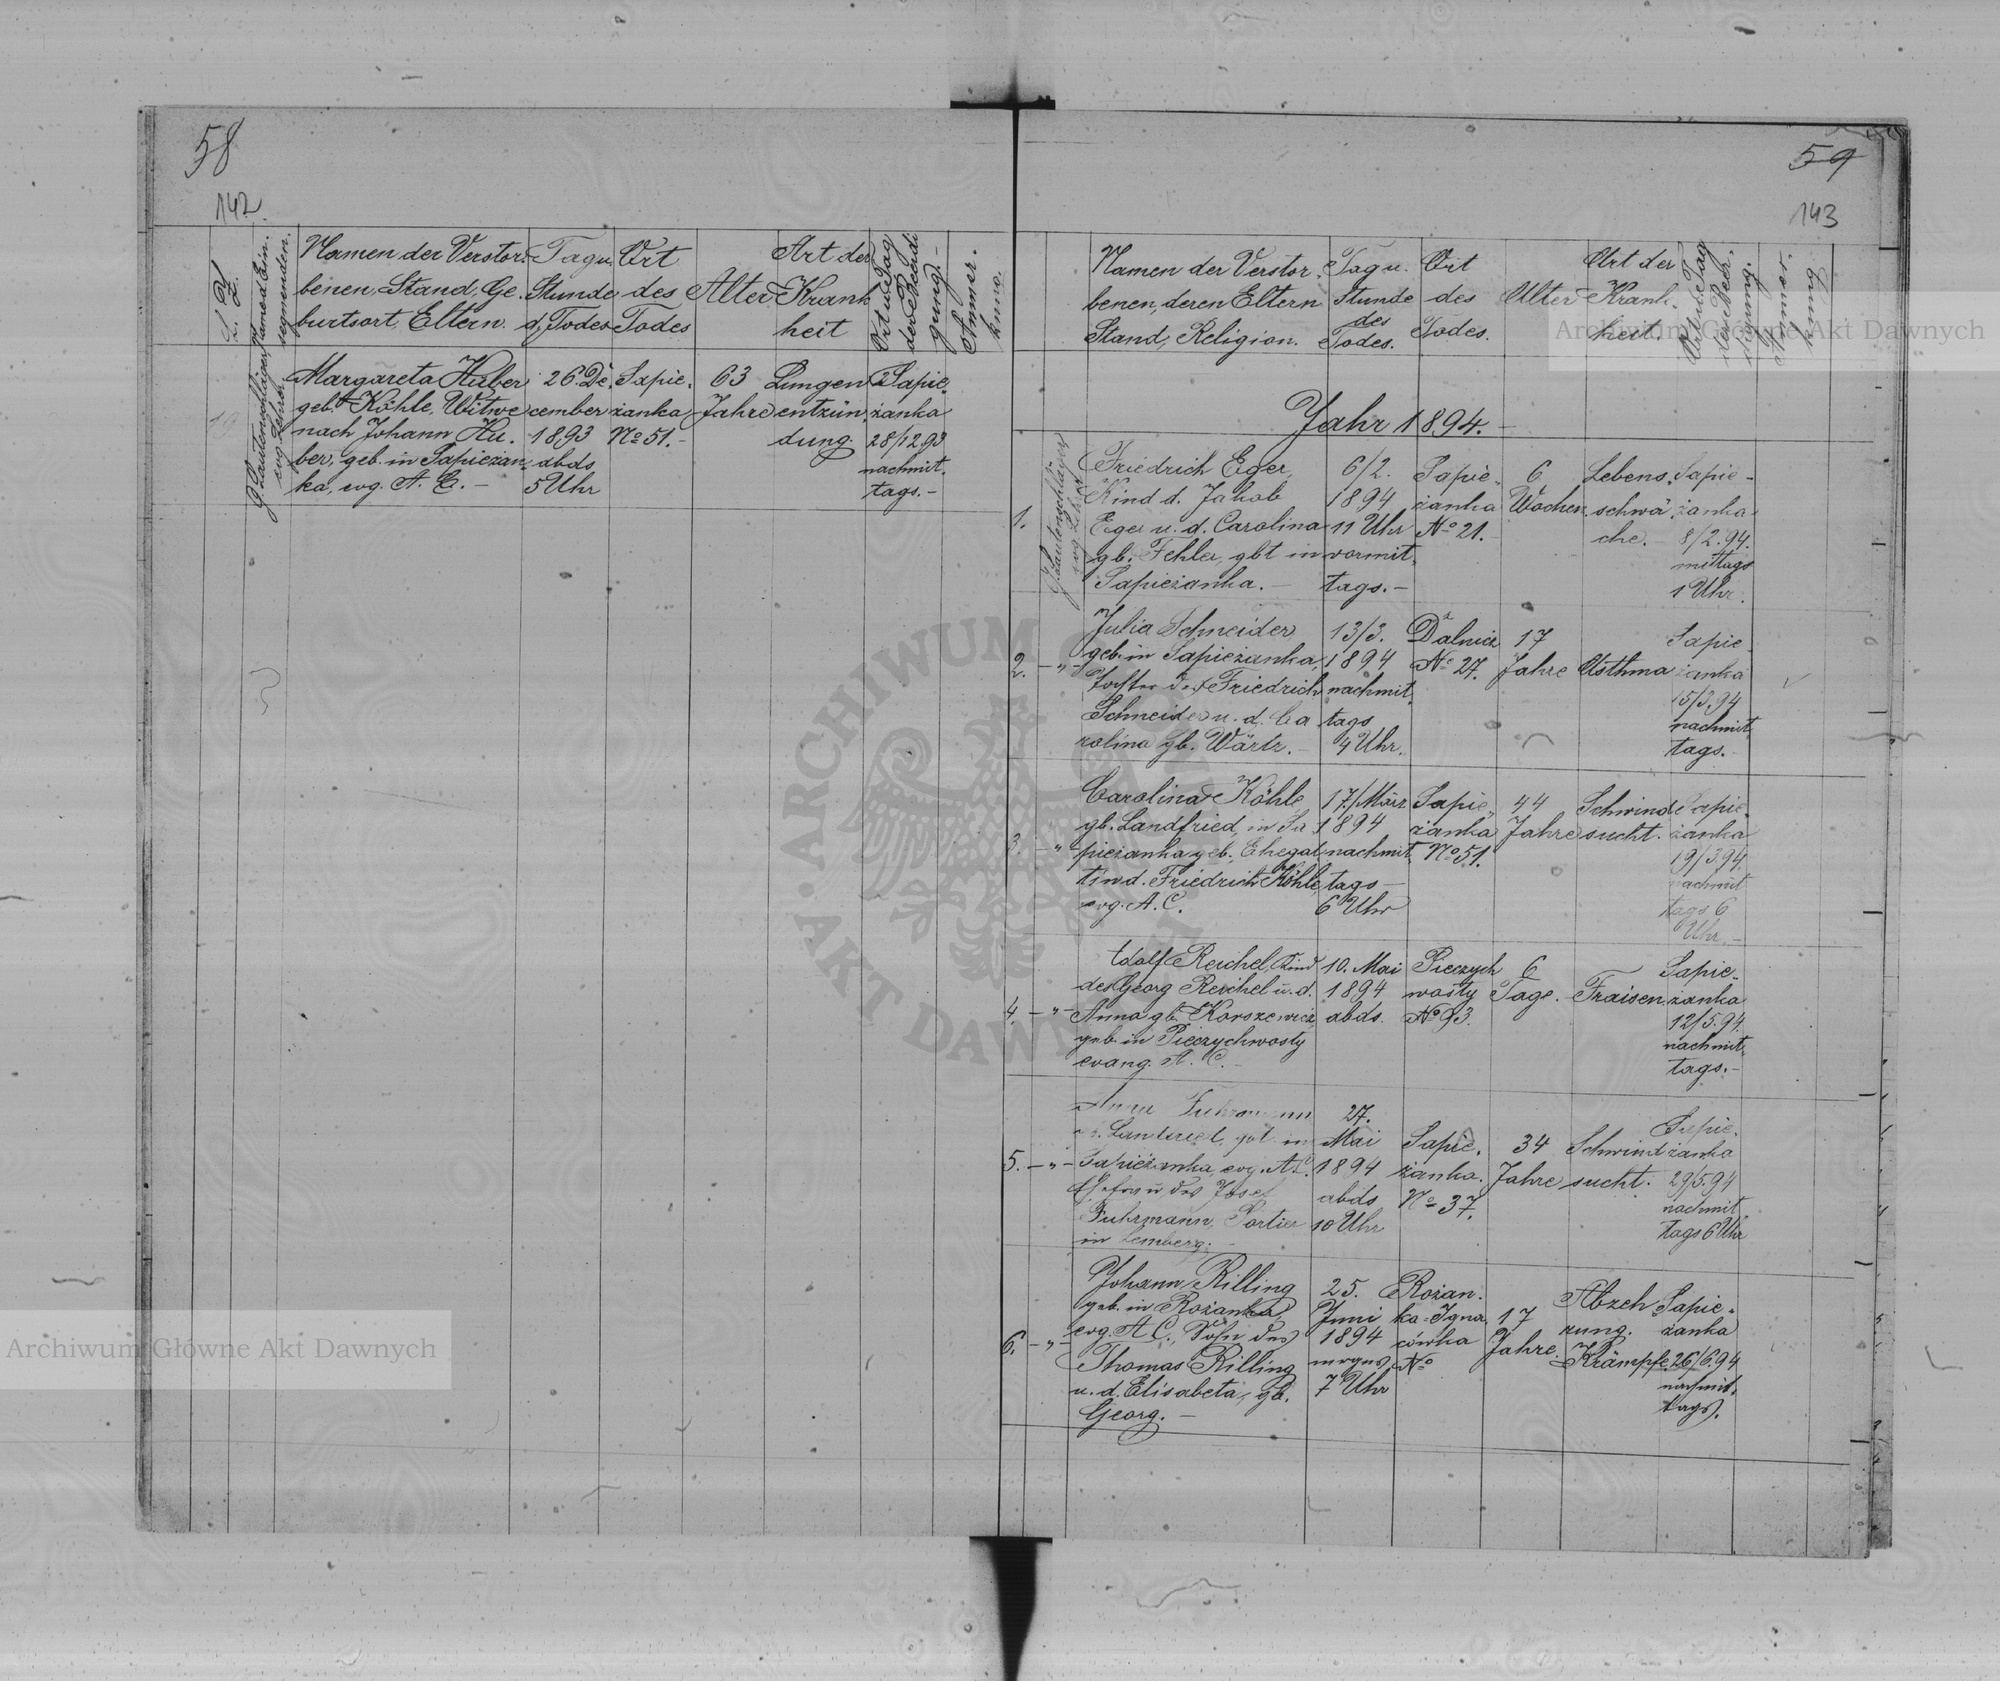 58
142
L. Z.
Name d. Ein-
segnenden.
Namen der Verstor-
benen, Stand, Ge-
burtsort, Eltern.
Tag u.
Stunde
d. Todes
Ort
des
Todes
Alter
Art der
Krank
heit
Ort u. Tag
der Beerdi
gung.
Anmer-
kung.
19
J. Lautenschläger,
evg. Lehrer
Margareta Huber
geb. Köhle, Witwe
nach Johann Hu-
ber, geb. in Sapiezan-
ka, evg. A. C. –
26. De-
cember
1893
abds
5 Uhr
Sapie-
żanka
No 51.–
63
Jahre
Lungen
entzün-
dung.
Sapie-
żanka
28/12 93
nachmit-
tags.–
59
143
Namen der Verstor-
benen, deren Eltern
Stand, Religion.
Tag u.
Stunde
des
Todes.
Ort
des
Todes.
Alter
Art der
Krank-
heit.
Ort u. Tag
der Beer-
digung.
Anmer-
kung
Jahr 1894.–
1.
J. Lautenschläger
evg. Lehrer
Friedrich Eger,
Kind d. Jakob
Eger u. d. Carolina
gb. Fehler, gbt in
Sapieżanka.–
6/2.
1894
11 Uhr
vormit-
tags.–
Sapie-
żanka
No 21.
6
Wochen
Lebens-
schwä-
che.–
Sapie-
żanka
8/2.94.
mittags
1 Uhr.
2. –„–
Julia Schneider,
geb. in Sapieżanka,
Tochter des Friedrich
Schneider u. d. Ca
rolina gb. Wärtz.–
13/3.
1894
nachmit-
tags
4 Uhr.
Dalnicz
No 27.
17
Jahre
Asthma
Sapie-
żanka
15/3.94
nachmit-
tags.–
3. –„–
Carolina Köhle,
gb. Landfried, in Sa
pieżanka geb., Ehegat-
tin d. Friedrich Köhle,
evg. A. C.
17./März
1894
nachmit-
tags –
6 Uhr
Sapie-
żanka
No 51.
44
Jahre
Schwind
sucht.
Sapie-
żanka
19/3.94.
nachmit
tags 6
Uhr.–
4. –„–
Adolf Reichel, Kind
des Georg Reichel u. d.
Anna gb. Korszewicz,
geb. in Pieczychwosty
evang. A. C.–
10. Mai
1894
abds.
Pieczych
wosty
No 93.
6
Tage.
Fraisen
Sapie-
żanka
12/5.94.
nachmit-
tags.–
5. –„–
Anna Fuhrmann
gbt in
Sapieżanka, evg. A. C.
Ehefrau des Josef
Fuhrmann, Portier
in Lemberg.–
27.
Mai
1894
abds
10 Uhr
Sapie-
żanka.
No 37.
34
Jahre
Schwind
sucht.
Sapie-
żanka
29/5.94
nachmit
tags 6 Uhr
6. –„–
Johann Rilling
geb. in Rożanka,
evg. A. C., Sohn des
Thomas Rilling
u. d. Elisabeta, gb.
Georg.–
25.
Juni
1894
mrgns
7 Uhr
Rożan-
ka-Igna-
cówka
No
17
Jahre.
Abzeh
rung.
Krämpfe
Sapie-
żanka
26/6.94
nachmit-
tags.
ARCHIWUM GŁÓWNE AKT DAWNYCH
Archiwum Główne Akt Dawnych
Archiwum Główne Akt Dawnych